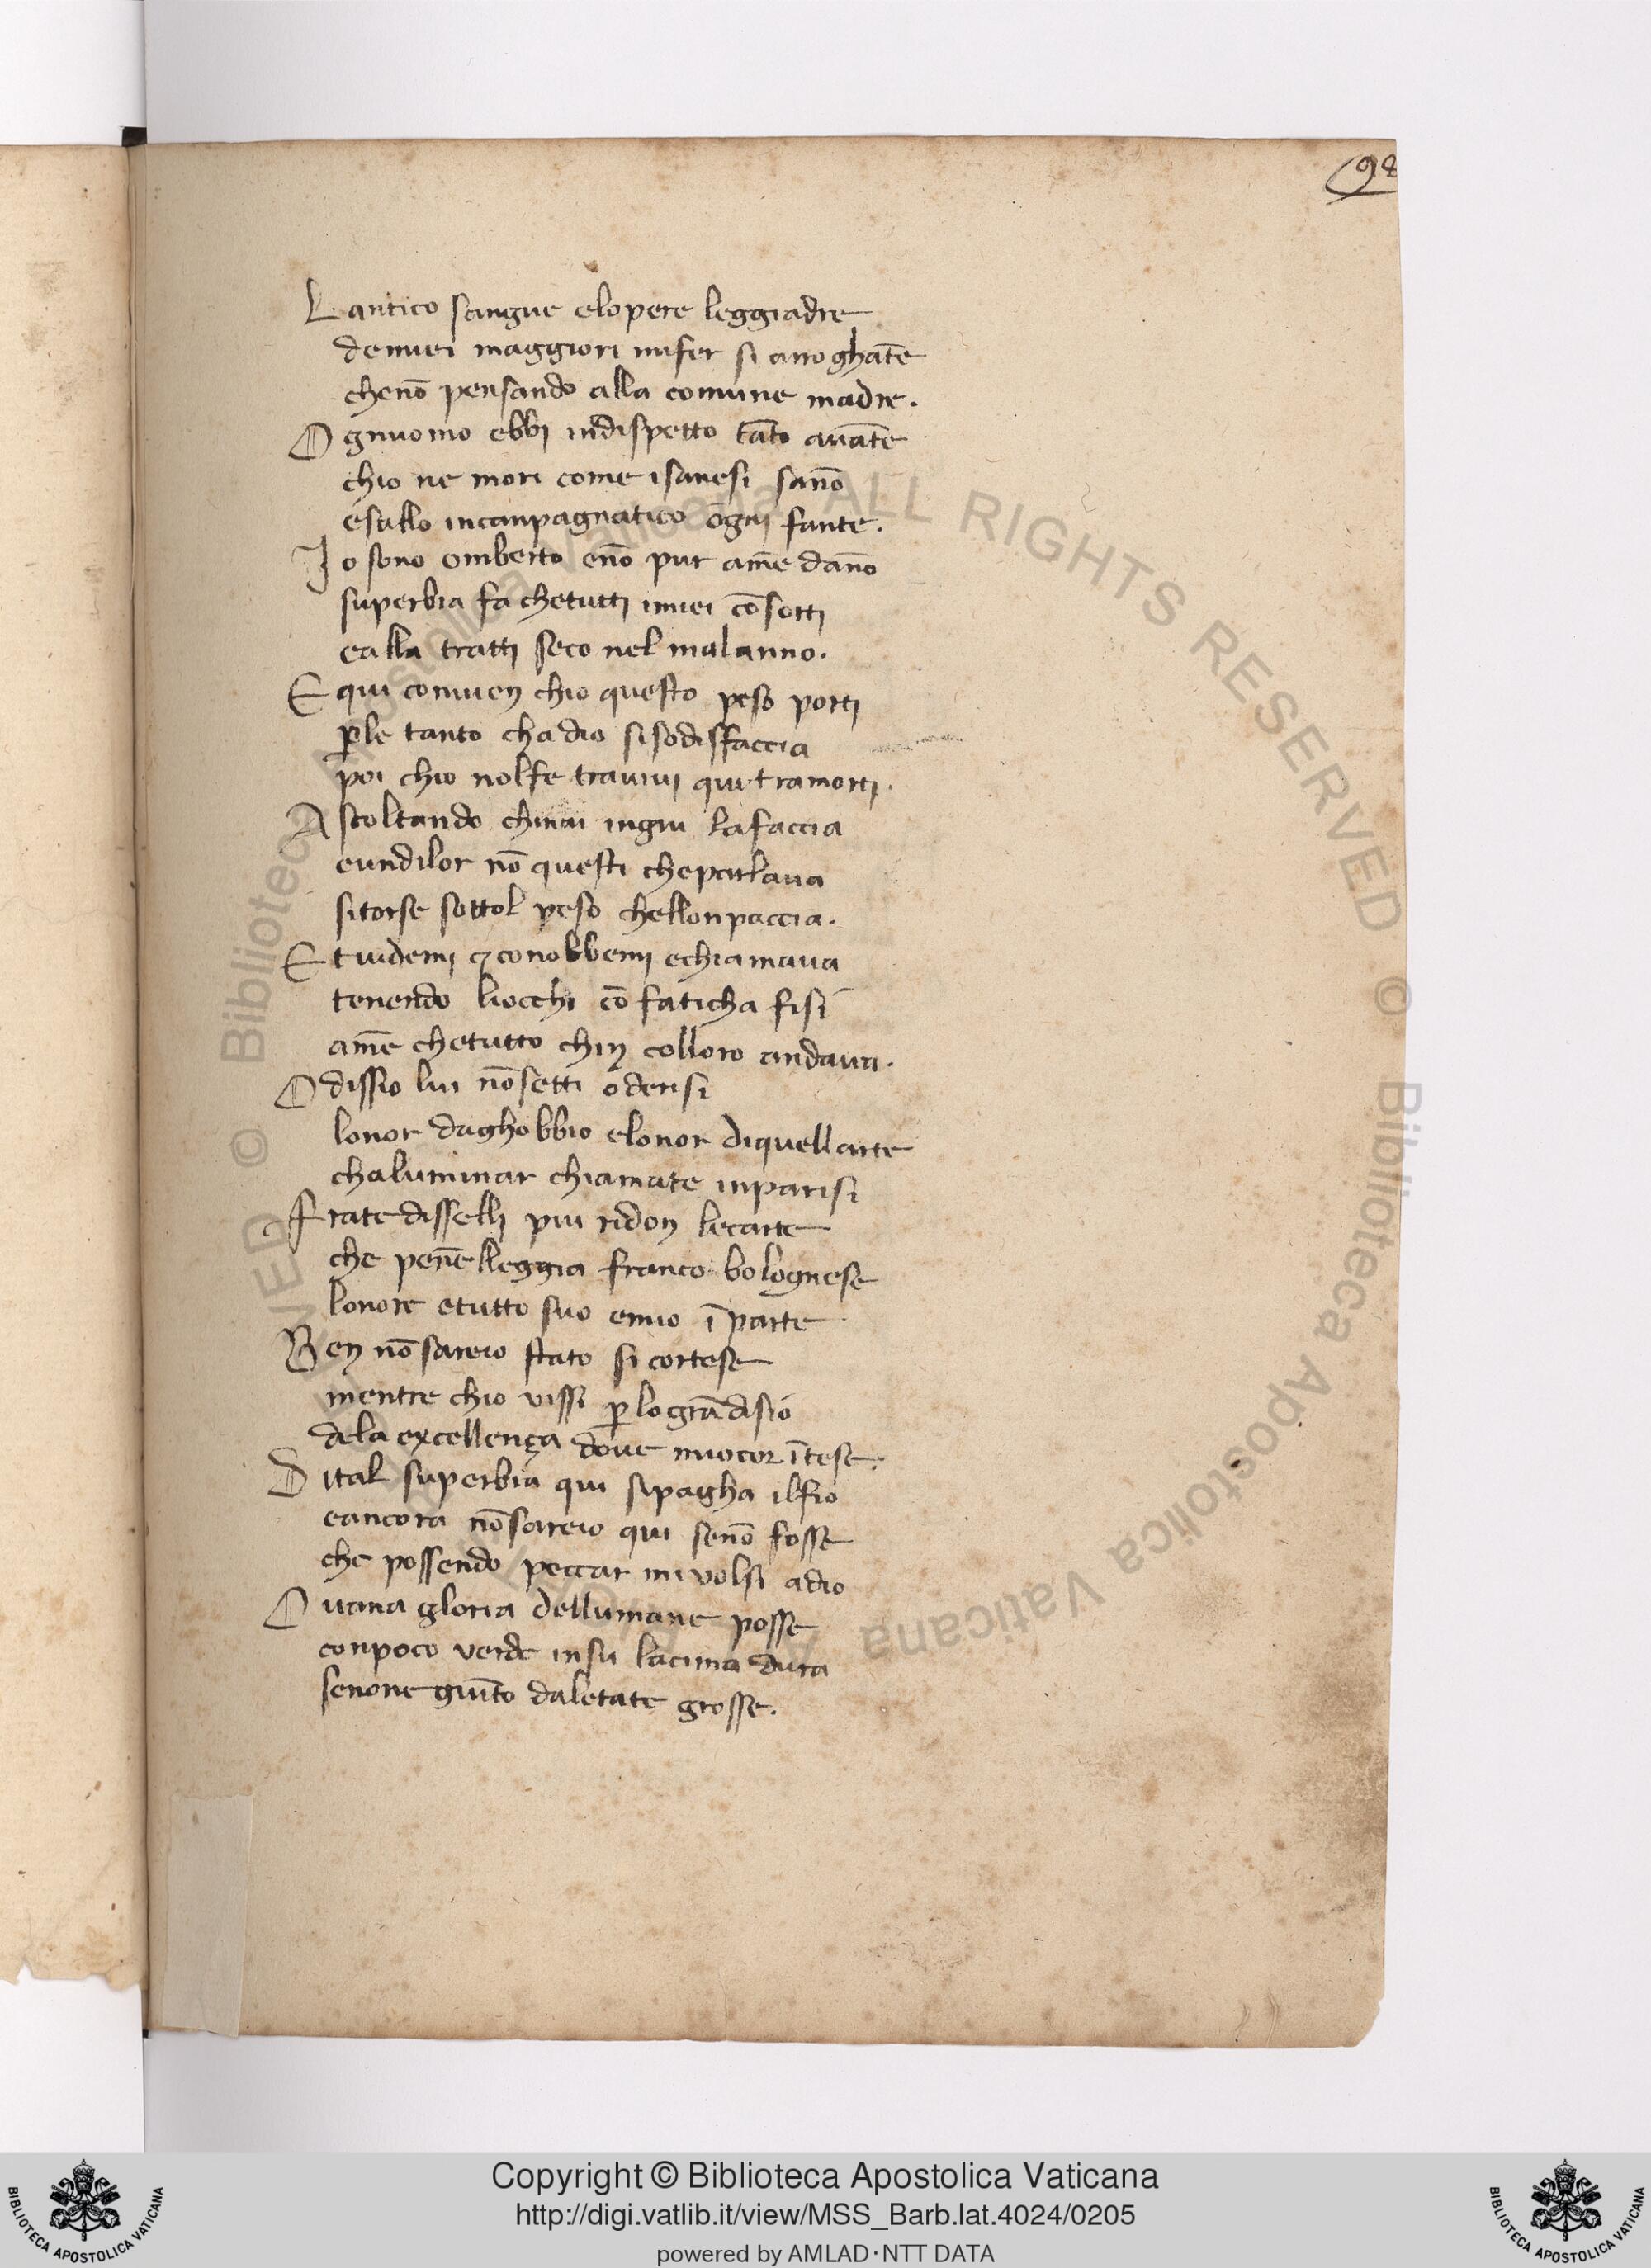 98
L antico sangue elopere leggiadre
demiei maggiori mifer si arroghāte
chenō pensando alla comune madre.
O gniuomo ebbi indispetto tāto auāte
chio ne mori come isanesi sanō
esallo incanpagnatico ogni fante.
I o sono omberto enō pur amē danō
superbia fa chetutti imiei cōsorti
ealla tratti seco nel malanno.
E qui conuien chio questo peso porti
ꝑle tanto cha dio sisodisfaccia
poi chio nolfe trauiui quitramorti.
A scoltando chinai ingiu lafaccia
eundilor nō questi cheparlaua
sitorse sottol peso chellonpaccia.
E t uidemi ⁊ conobbemi echiamaua
tenendo liocchi cō faticha fisi
amē chetutto chin colloro andaua.
O dissio lui nō setti oderisi
lonor daghobbio elonor diquellarte
chaluminar chiamate inparisi
F rate disselli piu ridon lecarte
che penēlleggia franco bolognese
lonore etutto suo emio ī parte
B en nō sareio stato si cortese
mentre chio uissi ꝑ lo grā disio
dela excellença doue miocor ītese.
D ital superbia qui sipagha ilfio
eancora nō sareio qui senō fosse
che possendo peccar miuolsi adio
O uana gloria dellumane posse
conpoco uerde insu lacima dura
senone giūto daletate grosse.
Copyright © Biblioteca Apostolica Vaticana
http://digi.vatlib.it/view/MSS_Barb.lat.4024/0205
powered by AMLAD·NTT DATA
BIBLIOTECA APOSTOLICA VATICANA
BIBLIOTECA APOSTOLICA VATICANA
© Biblioteca Apostolica Vaticana ALL RIGHTS RESERVED © Biblioteca Apostolica Vaticana ALL RIGHTS RESERVED